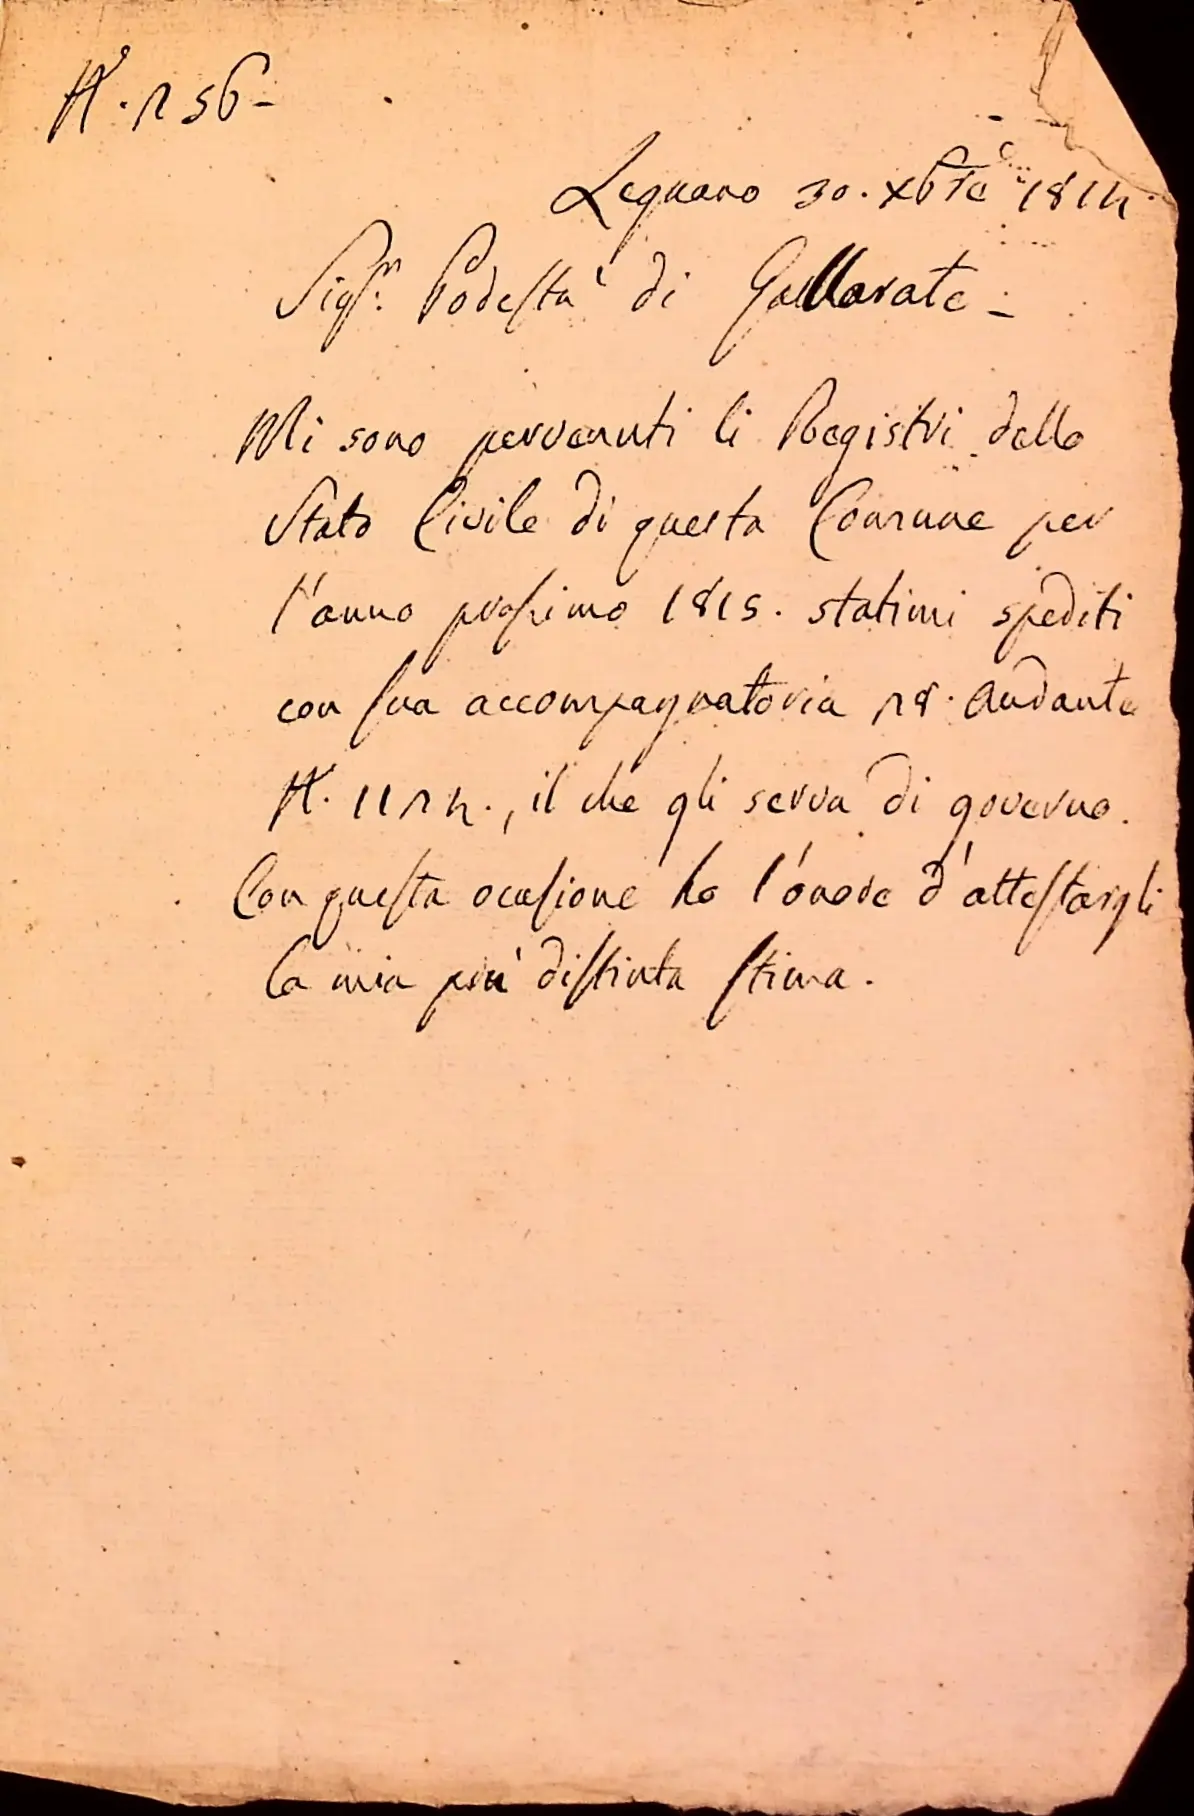 N.° 256-
Legnano 30. Xbre 1814
Sigr. Podestà di Gallarate -
Mi sono pervenuti li Registri dello
Stato Civile di questa Comune per
l'anno prossimo 1815. statimi spediti
con sua accompagnatoria 28. Andante
N. 1124., il che gli serva di governo.
Con questa ocasione ho l'onore d'attestargli
la mia più distinta stima.